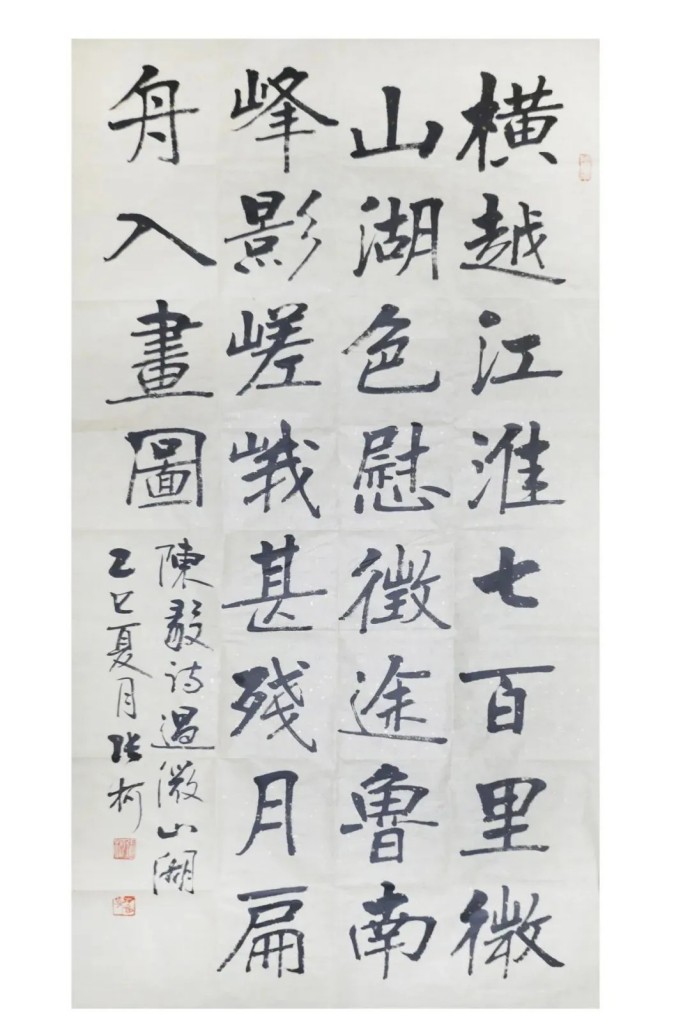 横越江淮七百里微
山湖色慰徵途魯南
峰影嵯峨甚殘月扁
舟入畫圖
陳毅诗過微山湖
乙巳夏月张柯